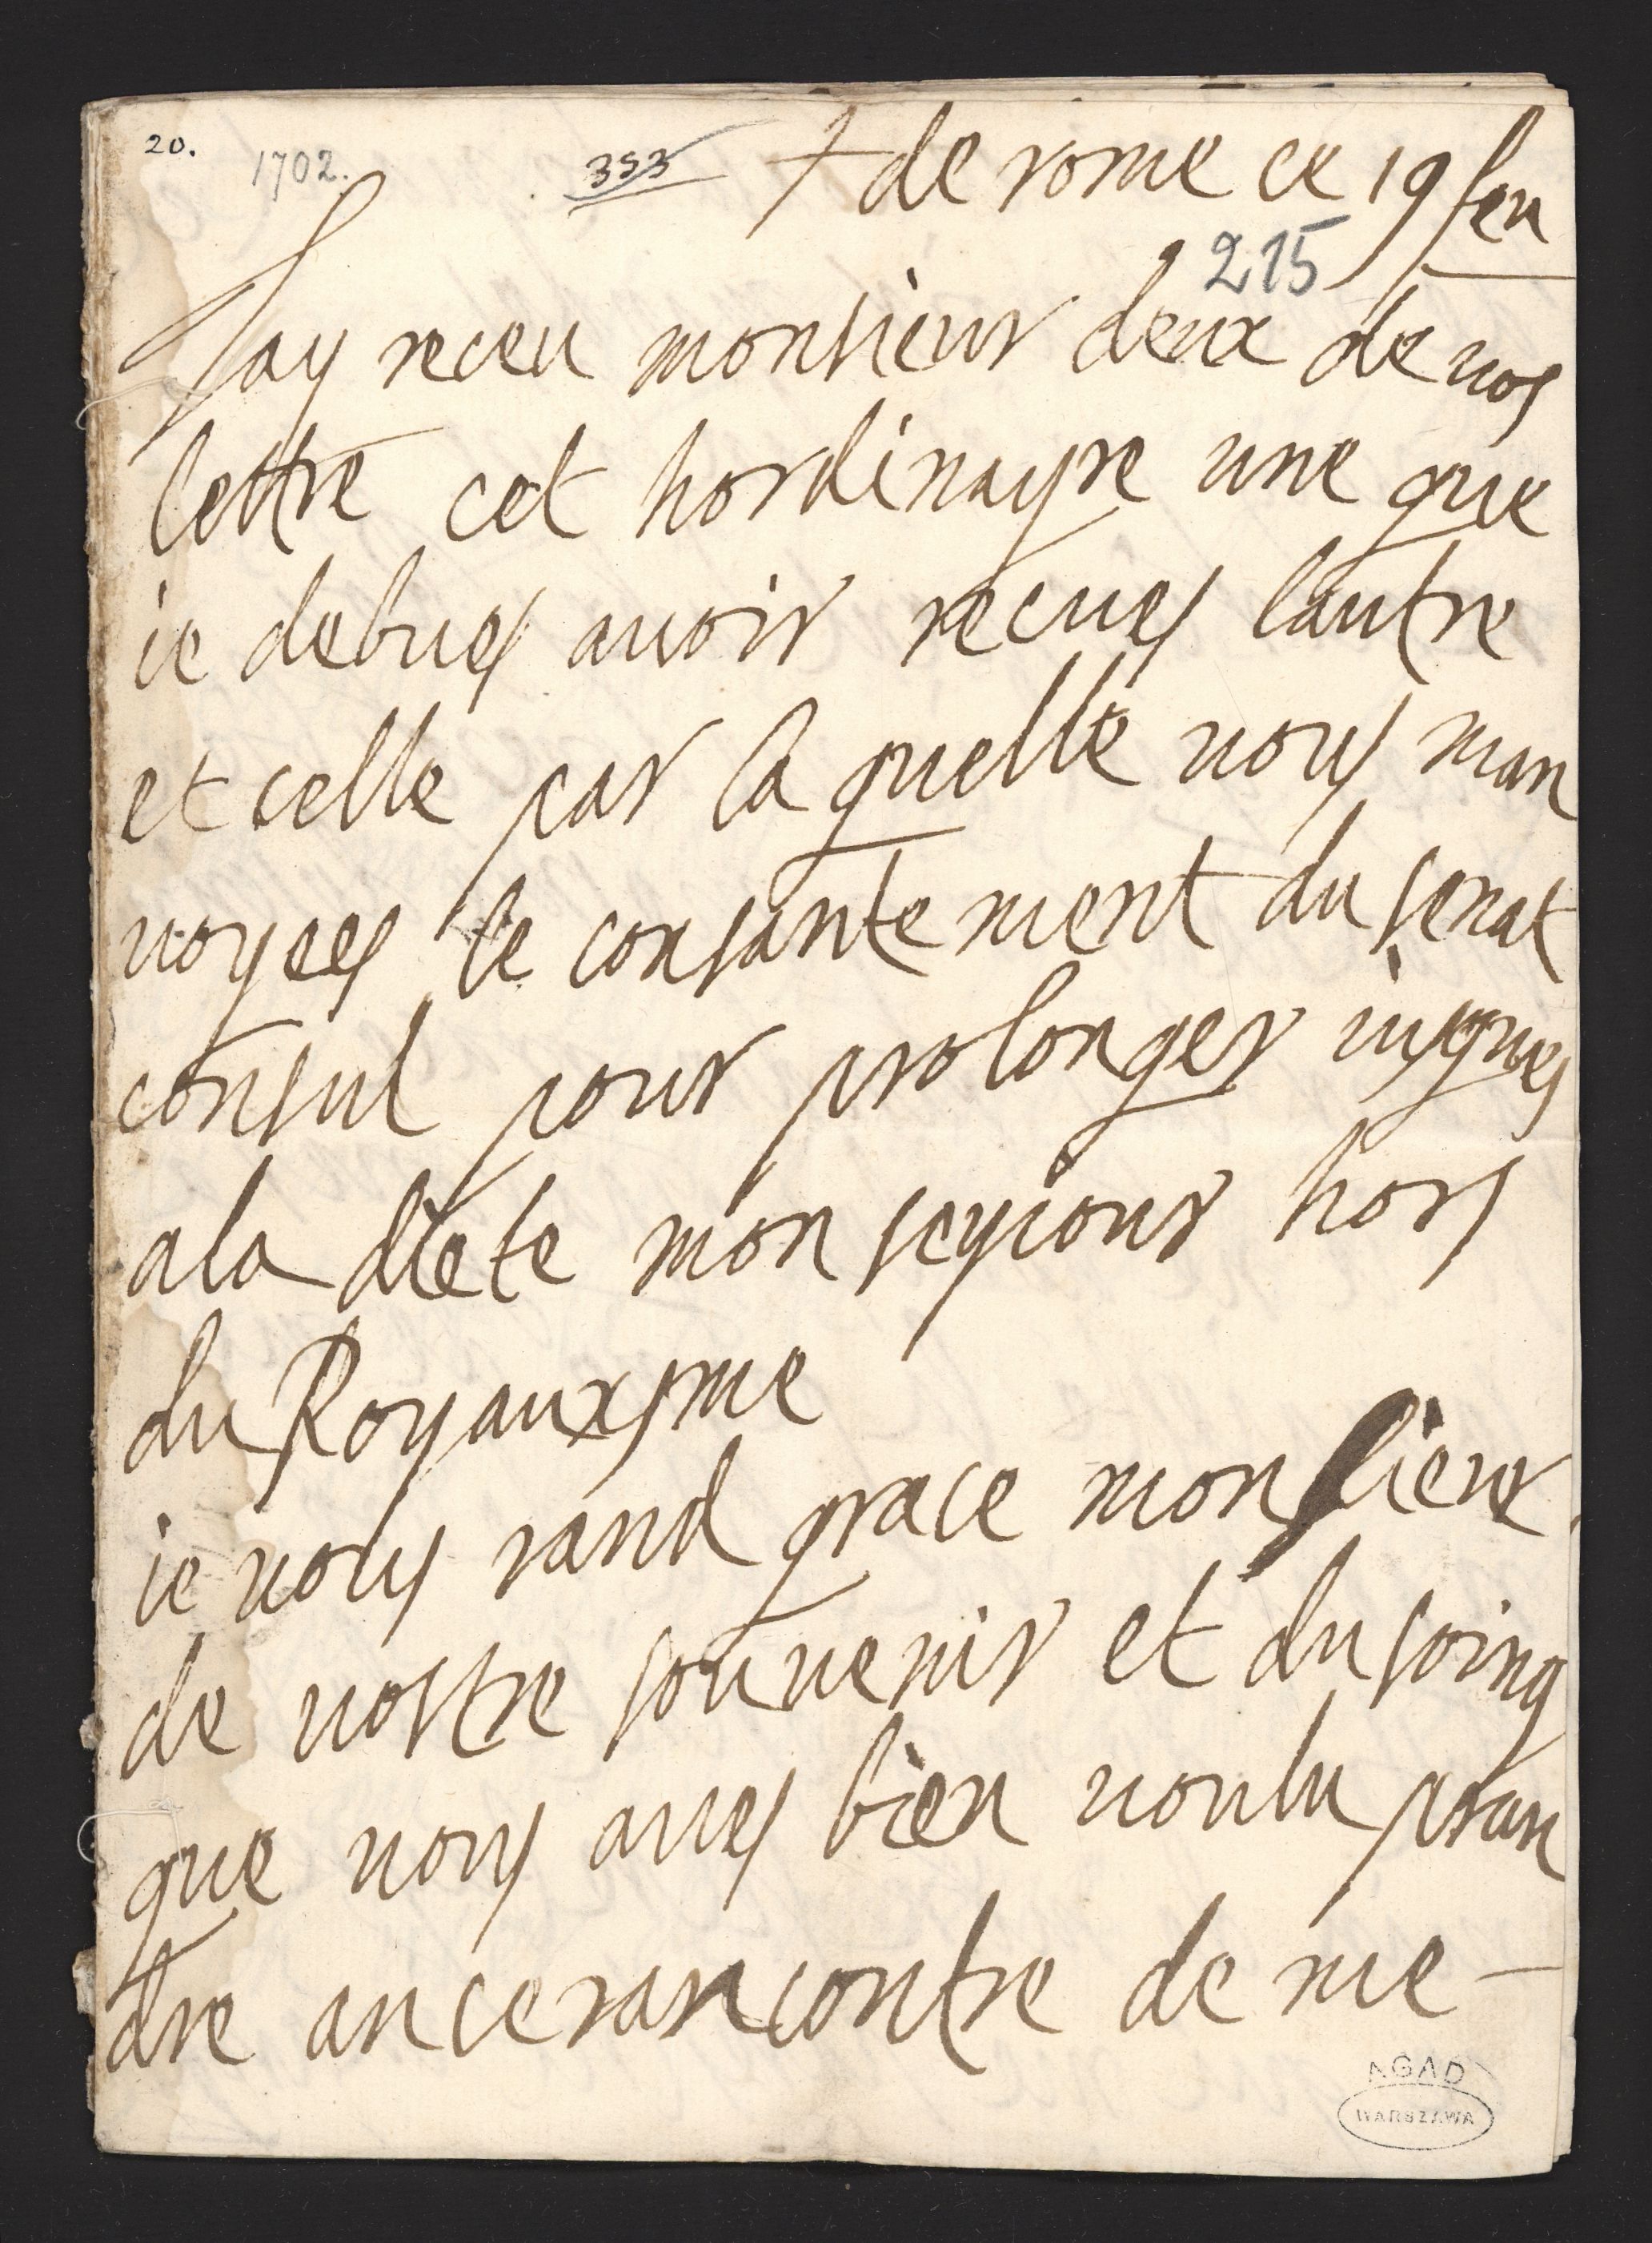 20.
1702.
353
+ de rome ce 19 feu
215
Jay receu monsieur deux de uos
lettre cet hordinayre une que
ie debues auoir recues lautre
et celle par la quelle uous man
uoyees le consantement du senat
consul pour prolonger iusques
a la diete mon seyiour hors
du Royauxsme
ie uous rand grace monsieur
de uostre souuenir et du soing
que uous aues bien uoulu pran
dre an ce rancontre de me –
AGAD
WARSZAWA